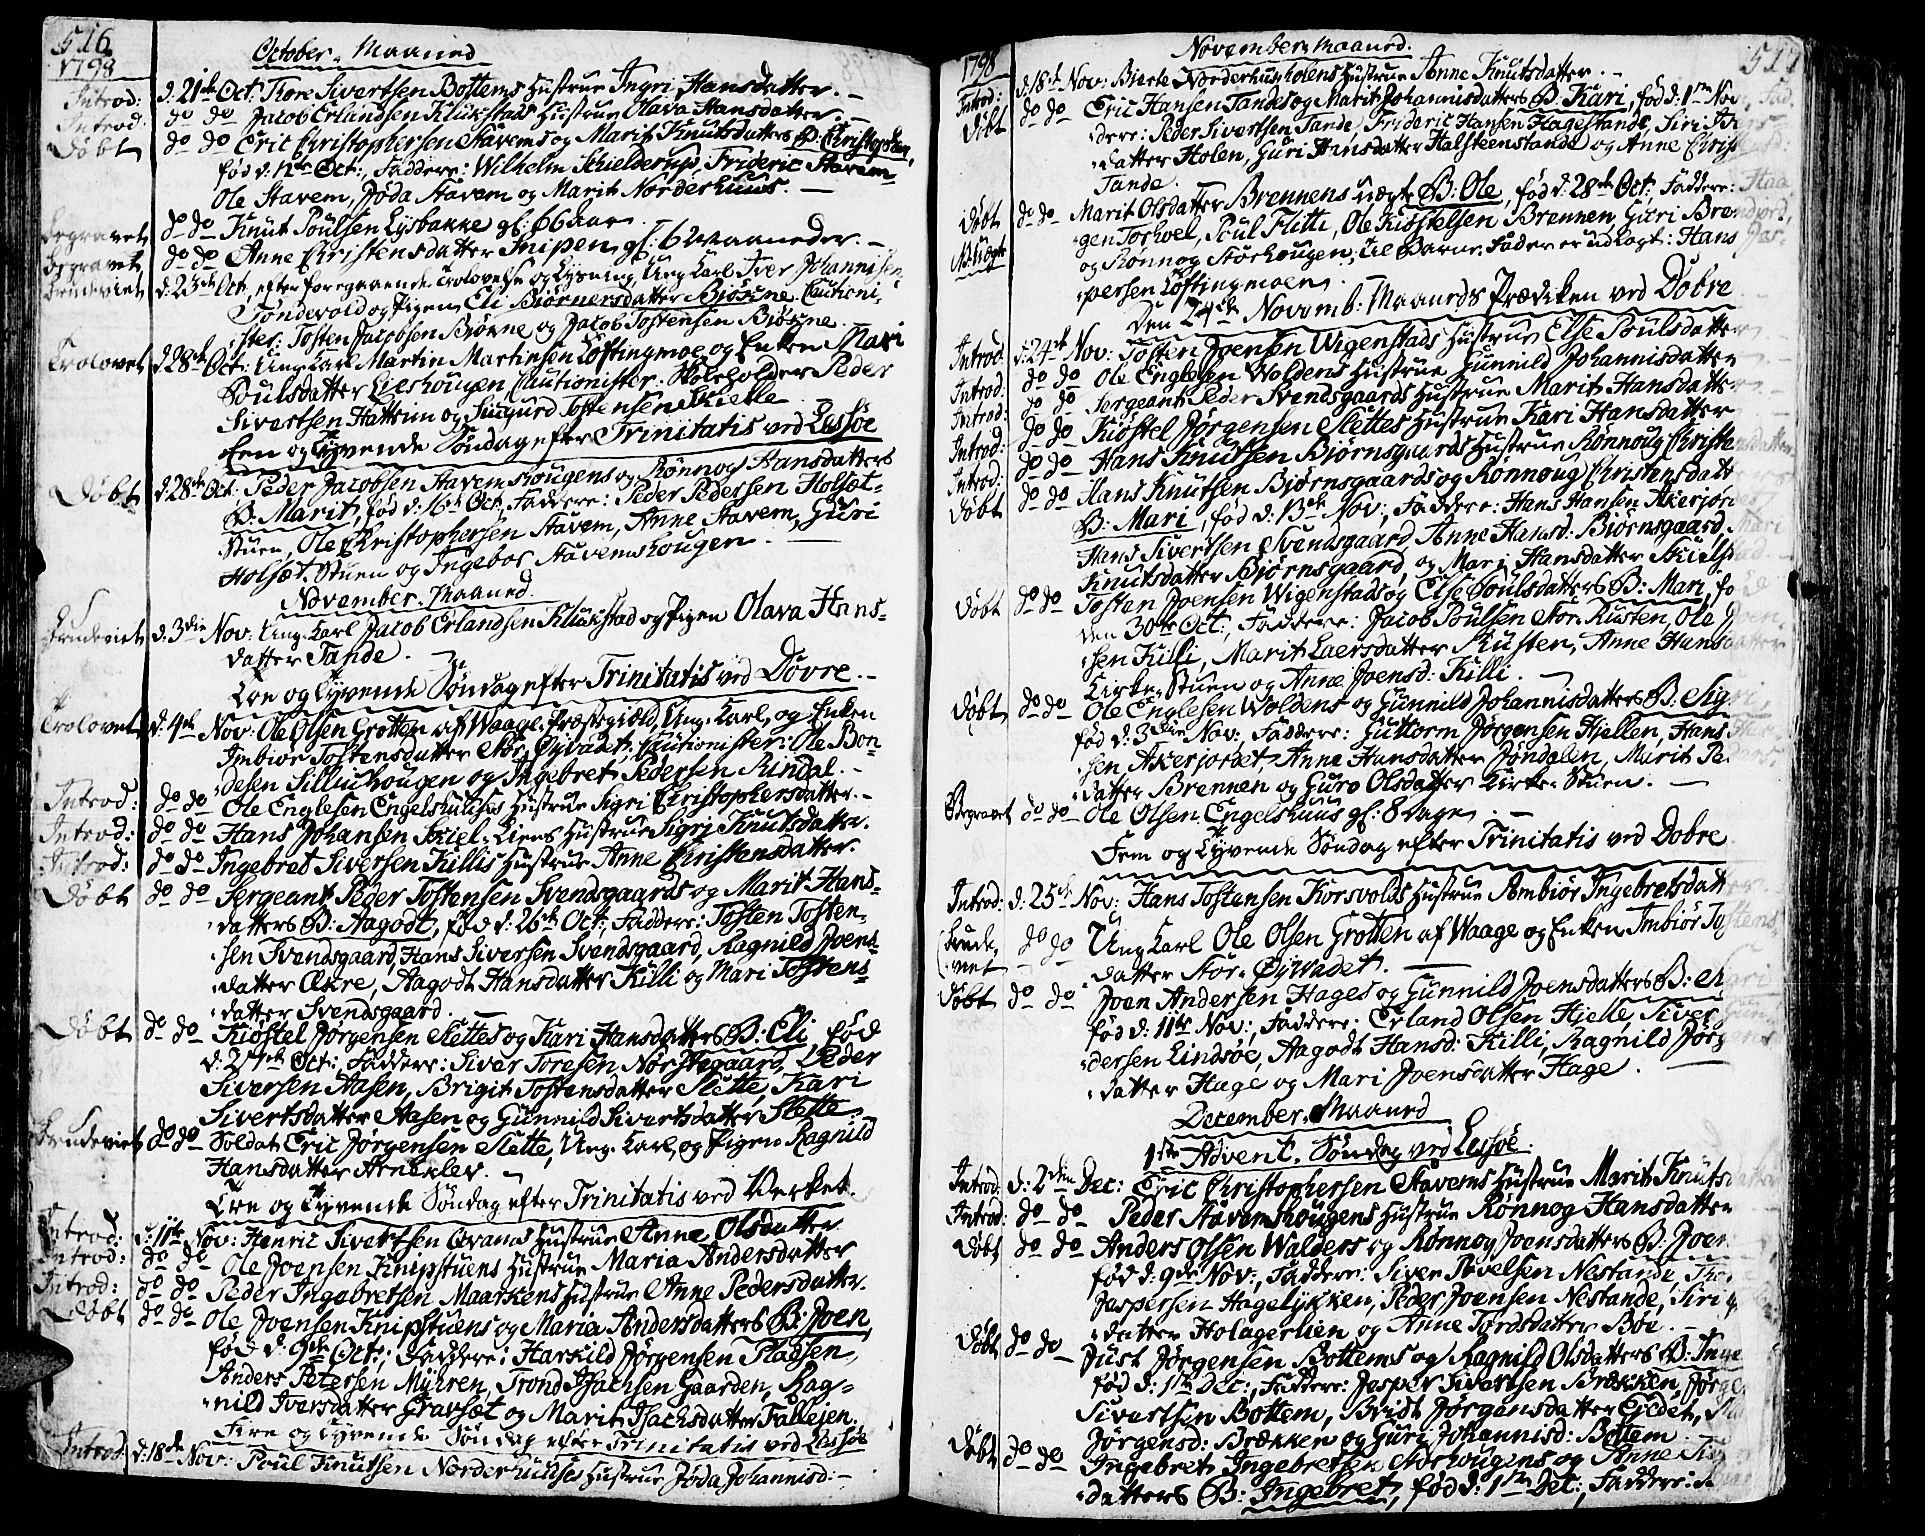 516
1798
October-Maaned
Introd: d: 21de Oct: Tore Sivertsen Bottems Hustrue Ingri Hansdatter. -
Introd: do do Jacob Erlandsen Klukstads Hustrue Olava Hansdatter. -
Døbt do do Eric Christophersen Stavems og Marit Knutsdatters B: Christopher,
fød d: 12te Oct:, Faddere: Wilhelm Schielderup, Frideric Stavem-
Ole Stavem, Jøda Stavem og Marit Norderhuus. -
Begravet do do Knut Poulsen Lysbakke gl: 66 aar
Begravet do do Anne Christensdatter Snipen gl: 6 Maaneder. -
Brudeviet d: 23de Oct, efter foregaaende Trolovelse og Lysning, Ung Karl Iver Johannisen
Tøndevold og Pigen Eli Biørnersdatter Biøkne Cautioni-
ster: Tosten Jacobsen Biøkne og Jacob Tostensen Biøkne.
Trolovet d. 28de Oct: Ung Karl Martin Martinsen Løftingmoe og Enken Mari
Poulsdatter Lieshougen Cautionister: Skoleholder Peder
Sivertsen Hattrim og Siugurd Tostensen Skielle
Een og Tyvende Søndag efter Trinitatis ved Lessøe
Døbt d. 28de Oct: Peder Jacobsen Stavemshougens og Rønnog Hansdatters
B: Marit, fød d: 16de Oct, Faddere: Peder Pedersen Holset-
Stuen, Ole Christophersen Stavem, Anne Stavem, Guri
Holset-Stuen og Ingebor Stavemshougen. -
November-Maaned.
Brudeviet d. 3die Nov: Ung Karl Jacob Erlandsen Klukstad og Pigen Olava Hans-
datter Tande. -
Toe og Tyvende Søndag efter Trinitatis ved Dovre. -
Trolovet d: 4de Nov: Ole Olsen Grotten af Waage-Præstegield, Ung-Karl, og Enken
Imbiør Tostensdatter Stor-Øyvadet, Cautionister: Ole Bon-
desen Silliuhougen og Ingebret Pedersen Rindal. -
Introd: do do Ole Englesen Engelshuuses Hustrue Sigri Christophersdatter. -
Introd: do do Hans Johansen Skiel-Liens Hustrue Sigri Knutsdatter.
Introd: do do Ingebret Siversen Killis Hustrue Anne Christensdatter.
Døbt do do Sergeant Peder Tostensen Svendsgaards og Marit Hans-
datters B: Aagodt, fød d: 26de Oct: Faddere: Tosten Tosten-
sen Svendsgaard, Hans Siversen Svendsgaard, Ragnild Joens-
datter Økre, Aagodt Hansdatter Killi og Mari Tostens-
datter Svendsgaard.
Døbt do do Kiøstel Jørgensen Slettes og Kari Hansdatters B: Eli, fød
d: 27de Oct: Faddere: Siver Toresen Norstegaard, Peder
Siversen Aasen, Brigit Tostensdatter Slette, Kari
Sivertsdatter Aasen og Gunnild Sivertsdatter Slette. -
Brudeviet do do Soldat Eric Jørgensen Slette, Ung-Karl, og Pigen Ragnild
Hansdatter Arneklev. -
Tre og Tyvende Søndag efter Trinitatis ved Verket.
Introd: d: 11te Nov: Henric Sivertsen Hustrue Anne Olsdatter
Introd: do do Ole Joensen Knipstuens Hustrue Maria Andersdatter
Introd: do do Peder Ingebretsen Maarkens Hustrue Anne Pedersdatter.
Døbt do do Ole Joensen Knipstuens og Maria Andersdatters B: Joen,
fød d: 9de Oct:, Faddere: Harkild Jørgensen Pladsen,
Anders Petersen Myhren, Trond Isachsen Gaarden, Rag-
nild Iversdatter Gravset og Marit Isachsdatter Tallejen.
Fire og Tyvende Søndag efter Trinitatis ved Lessøe
Introd. d: 18de Nov: Poul Knutsen Norderhuuses Hustrue Jøda Johannisd: -
517
1798
November-Maaned.
Introd: d: 18de Nov: Bierte Norderhuusholens Hustrue Anne Knutsdatter. -
Døbt do do Eric Hansen Tandes og Marit Johannisdatters B: Kari, fød d: 1ste Nov, Fad-
dere: Peder Sivertsen Tande, Frideric Hansen Hagestande, Siri
datter Holen, Guri Hansdatter Halsteenstande og Anne
Tande.
Døbt do do Marit Olsdatter Brennens uægte B: Ole, fød d. 28de Oct; Faddere: Haa-
N: Uægte gen Torvel, Poul Flitti, Ole Kiøstelsen Brennen, Guri Brenjord,
og Rønnog Storhougen; til Barne-Fader er udlagt: Hans Jas-
persen Løftingmoen
Den 24de Novemb: Maaneds Prædiken ved Dovre
Introd: d: 24de Nov: Tosten Joensen Wigenstads Hustrue Else Poulsdatter
Introd: do do Ole Englesen Woldens Hustrue Gunnild Johannisdatter
Introd: do do Sergeant Peder Svendsgaards Hustrue Marit Hansdatter
Introd: do do Kiøstel Jørgensen Slettes Hustrue Kari Hansdatter
Introd: do do Hans Knutsen Biørnsgaards Hustrue Rønnoug Christensdatter
Døbt do do Hans Knutsen Biørnsgaards og Rønnoug Christensdatt
B: Mari, fød d: 13de Nov:, Faddere: Hans Hansen Akerjordet
Hans Sivertsen Svendsgaard, Anne Hansd: Biørnsgaard, Mari
Knutsdatter Biørnsgaard, og Mari Hansdatter
Døbt do do Tosten Joensen Wigenstads og Else Poulsdatters B: Mari, fød
den 30te Oct:, Faddere: Jacob Poulsen Stor-Rusten, Ole Joen-
sen Killi, Marit Laersdatter Rusten, Anne Hansdatter
Kirke-Stuen og Anne Joensd: Killi. -
Døbt do do Ole Englesen Woldens og Gunnild Johannisdatters B: Sigri,
fød d: 3die Nov:, Faddere: Guttorm Jørgensen Hjellen, Hans
sen Akerjordet, Anne Hansdatter Jøndalen, Marit
datter Brennen og Guro Olsdatter Kirke-Stuen. -
Begravet do do Ole Olsen Engelshuus gl: 8 Dage -
Fem og Tyvende Søndag efter Trinitatis ved Dovre
Introd: d: 25de Nov: Hans Tostensen Korsvolds Hustrue Ambiør Ingebretsdatter.
Brude- do do Ung Karl Ole Olsen Grotten af Waage og Enken Imbiør Tostens-
viet datter Stor-Øyvadet. -
Døbt do do Joen Andersen Hages og Gunnild Joensdatters B: Mari
fød d: 11te Nov:, Faddere: Erland Olsen Hjelle, Siver Gun-
dersen Lindsøe, Aagodt Hansd: Killi, Ragnild Jørgens-
datter Hage og Mari Joensdatter Hage. -
December-Maaned
1ste Advent-Søndag ved Lessøe.
Introd: d: 2den Dec: Eric Christophersen Stavems Hustrue Marit Knutsdatter
Introd: do do Peder Stavemshougens Hustrue Rønnog Hansdatter
Døbt do do Anders Olsen Walders og Rønnoy Joensdatters B: Joen
fød d: 9de Nov:, Faddere: Siver Povelsen Nestande,
Jaspersen Hagelykken, Peder Joensen Nestande, Siri
datter Holagerlien og Anne Tordsdatter Bøe. -
Døbt do do Just Jørgensen Bottems og Ragnild Olsdatters B:
fød d: 1ste Dec:, Faddere: Jasper Sivertsen Brækken,
Sivertsen Bottem, Bridt Jørgensdatter
Jørgensd: Brækken og Guri Johannisd: Bottem.
Døbt do do Ingebret Ingebretsen Nørhougens og Anne
datters B: Ingebret, fød d: 1ste Dec:, Faddere: